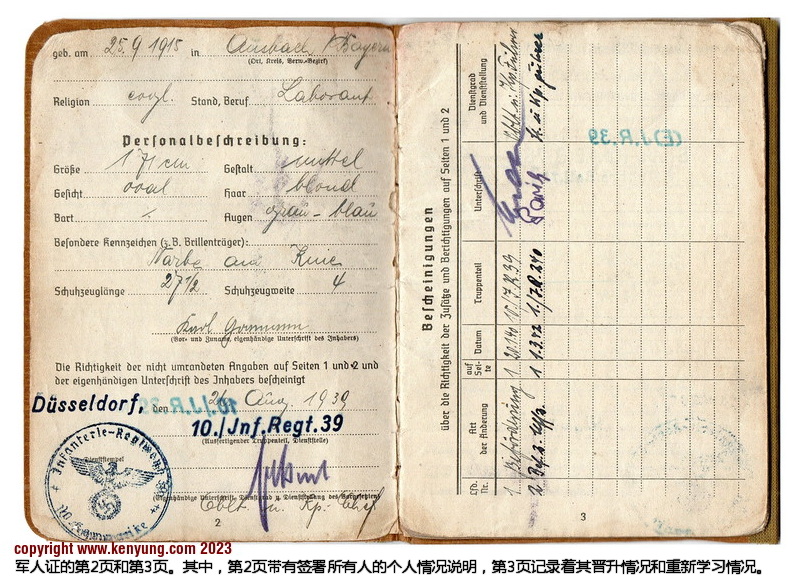 geb. am 25.9.1915 in Ansbach / Bayern
(Ort, Kreis, Verw.-Bezirk)
Religion evgl. Stand, Beruf Laborant
Personalbeschreibung:
Größe 171 cm Gestalt mittel
Gesicht oval Haar blond
Bart ./. Augen grau - blau
Besondere Kennzeichen (z.B. Brillenträger):
Narbe am Knie
Schuhzeuglänge 27 1/2 Schuhzeugweite 4
Karl
(Vor- und Zuname, eigenhändige Unterschrift des Inhabers)
Die Richtigkeit der nicht umrandeten Angaben auf Seiten 1 und 2 und
der eigenhändigen Unterschrift des Inhabers bescheinigt
Düsseldorf, den 26. Aug. 1939
10./Jnf.Regt.39
(Ausfertigender Truppenteil, Dienststelle)
Dienststempel
Infanterie-Regiment
(Eigenhändige Unterschrift, Dienstgrad u. Dienststellung des Vorgesetzten)
Oblt. u. Kp. Chef
2
Bescheinigungen
über die Richtigkeit der Zusätze und Berichtigungen auf Seiten 1 und 2
Lfd. Nr.
Art der Änderung
auf Seite
Datum
Truppenteil
Unterschrift
Dienstgrad und Dienststellung
1 Beförderung 1
2 1 1.3.42
(E) J.R.39
3
copyright www.kenyung.com 2023
军人证的第2页和第3页。其中，第2页带有签署所有人的个人情况说明，第3页记录着其晋升情况和重新学习情况。